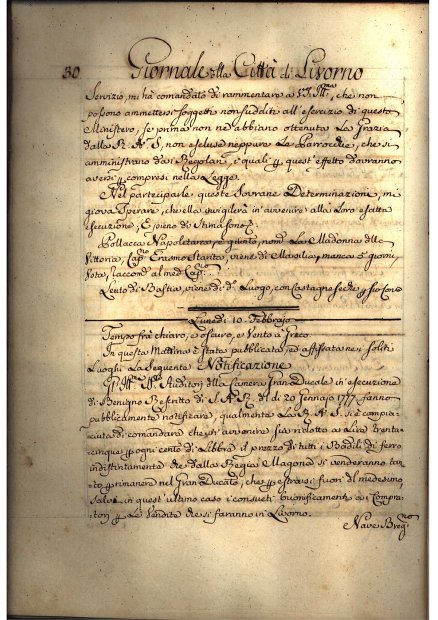 30 Giornale della Città di Livorno
Servizio, mi hà comandato di rammentare a V.S. Ill.ma, che non
possono ammettersi soggetti non sudditi all'esercizio di questo
Ministero, se prima non ne abbiano ottenuta La Grazia
dalla R. A. S., non escluse neppure Le Parrocchie, che si
amministrano dai Regolari, e quali p quest' effetto dovranno
aversi p compresi nella Legge.
Nel parteciparle queste Sovrane Determinazioni, mi
giova Sperare, che ella invigilerà in avvenire alla Loro esatta
esecuzione, E pieno di Stima sono &c.
Pollacca Napoletana, e quinto, nom.ta La Madonna delle
Vittoria, Cap.no Erasmo Starita, viene di Marsilia, manca 5 giorni,
Vota, raccom. al med. Cap.no
Leuto di Bastia, viene di d.o Luogo, con Castagne secche,
Lunedì 10. Febbrajo
Tempo frà chiaro, e oscuro, e Vento à Greco.
In questa Mattina è stata pubblicata, ed affissata nei soliti
Luoghi La Seguente Notificazione
Gl'Ill.mi Sig.ri Auditori della Camera Gran Ducale in esecuzione
di Benigno Rescritto di S. A. R. del dì 20 Gennajo 1777. fanno
pubblicamente notificare, qualmente La R. A. S. si è compia-
ciuta di comandare che s'abbia ridotto a Lire trenta-
cinque p ogni cento di Libbra il prezzo di tutti i Badili di ferro
indistintamente che dalla Regia Magona si venderanno tan-
to p rimanere nel Gran Ducato, che p estrarsi fuori del medesimo,
Salvi in quest' ultimo caso i consueti buonificamenti a i Compra-
tori p Le Vendite che si faranno in Livorno.
Nave